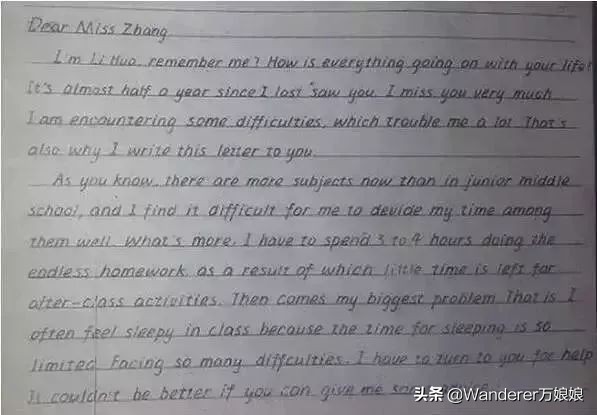 Dear Miss Zhang
I'm Li Hua, remember me? How is everything going on with your life?
It's almost half a year since I last saw you. I miss you very much
I am encountering some difficulties, which trouble me a lot. That's
also why I write this letter to you.
As you know, there are more subjects now than in junior middle
school, and I find it difficult for me to devide my time among
them well. What's more, I have to spend 3 to 4 hours doing the
endless homework, as a result of which little time is left for
after-class activities. Then comes my biggest problem That is I
often feel sleepy in class because the time for sleeping is so
limited. Facing so many diffculties, I have to turn to you for help
It couldn't be better if you can give me
头条 @Wanderer万娘娘